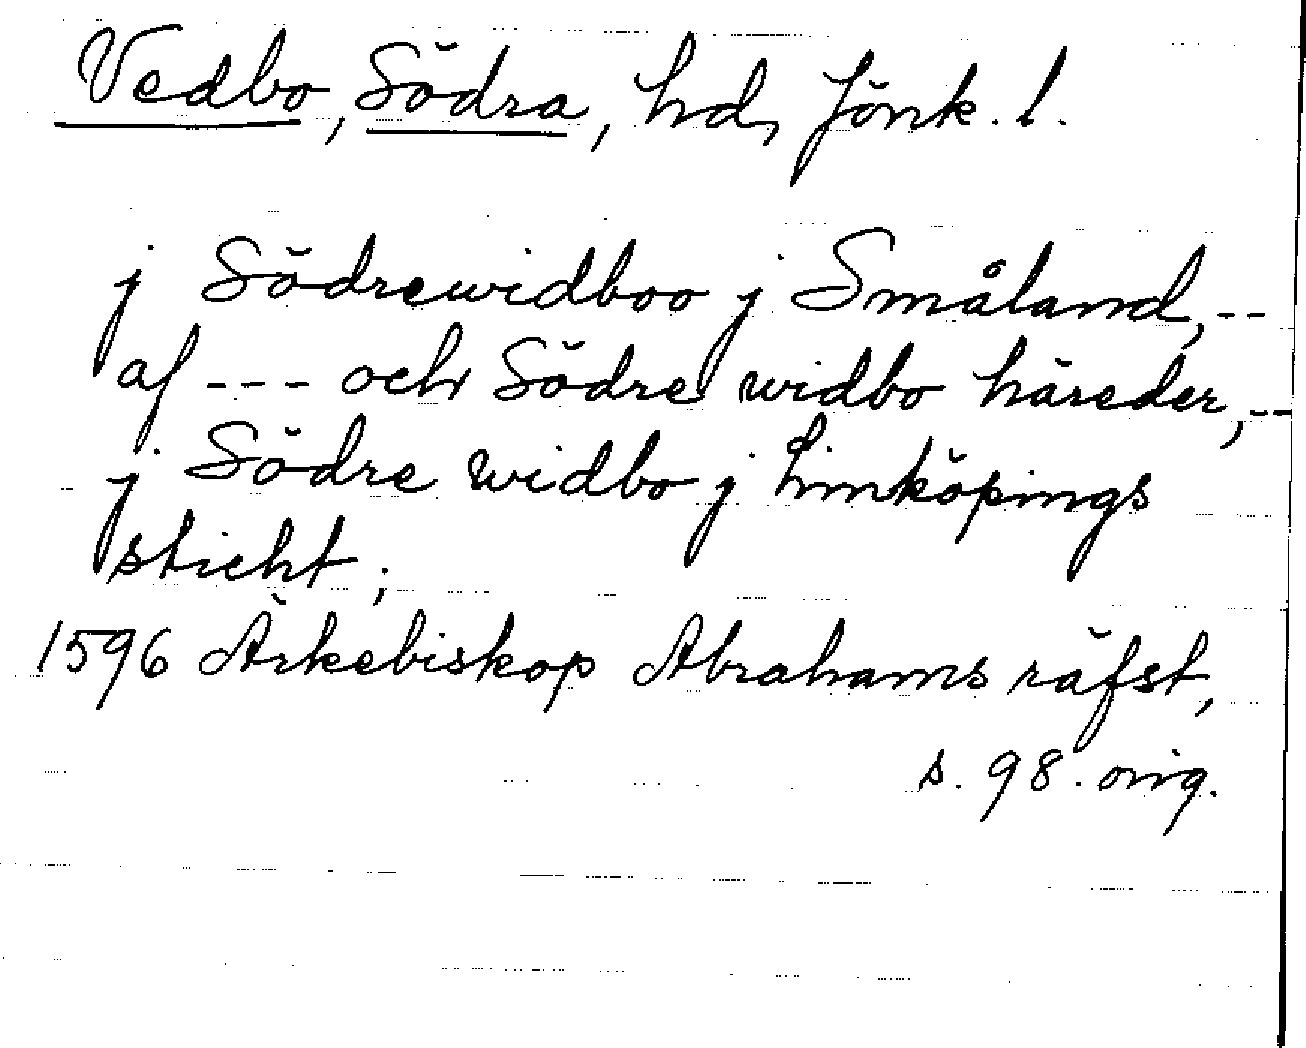 Vedbo, Södra, hd, Jönk. l.
j Södrewidboo j Småland, --
af --- och Södre widbo häreder, --
j Södre widbo j Linköpings
sticht;
1596 Ärkebiskop Abrahams räfst,
s. 98. orig.